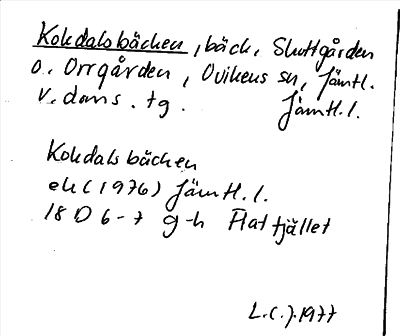 Kokdalsbäcken, bäck, Sluttgården
o. Orrgården, Ovikens sn, Jämtl.
v. doms. tg. Jämtl. l.
Kokdalsbäcken
ek (1976) Jämtl. l.
18 D 6-7 g-h Flatfjället
L.C.J. 1977